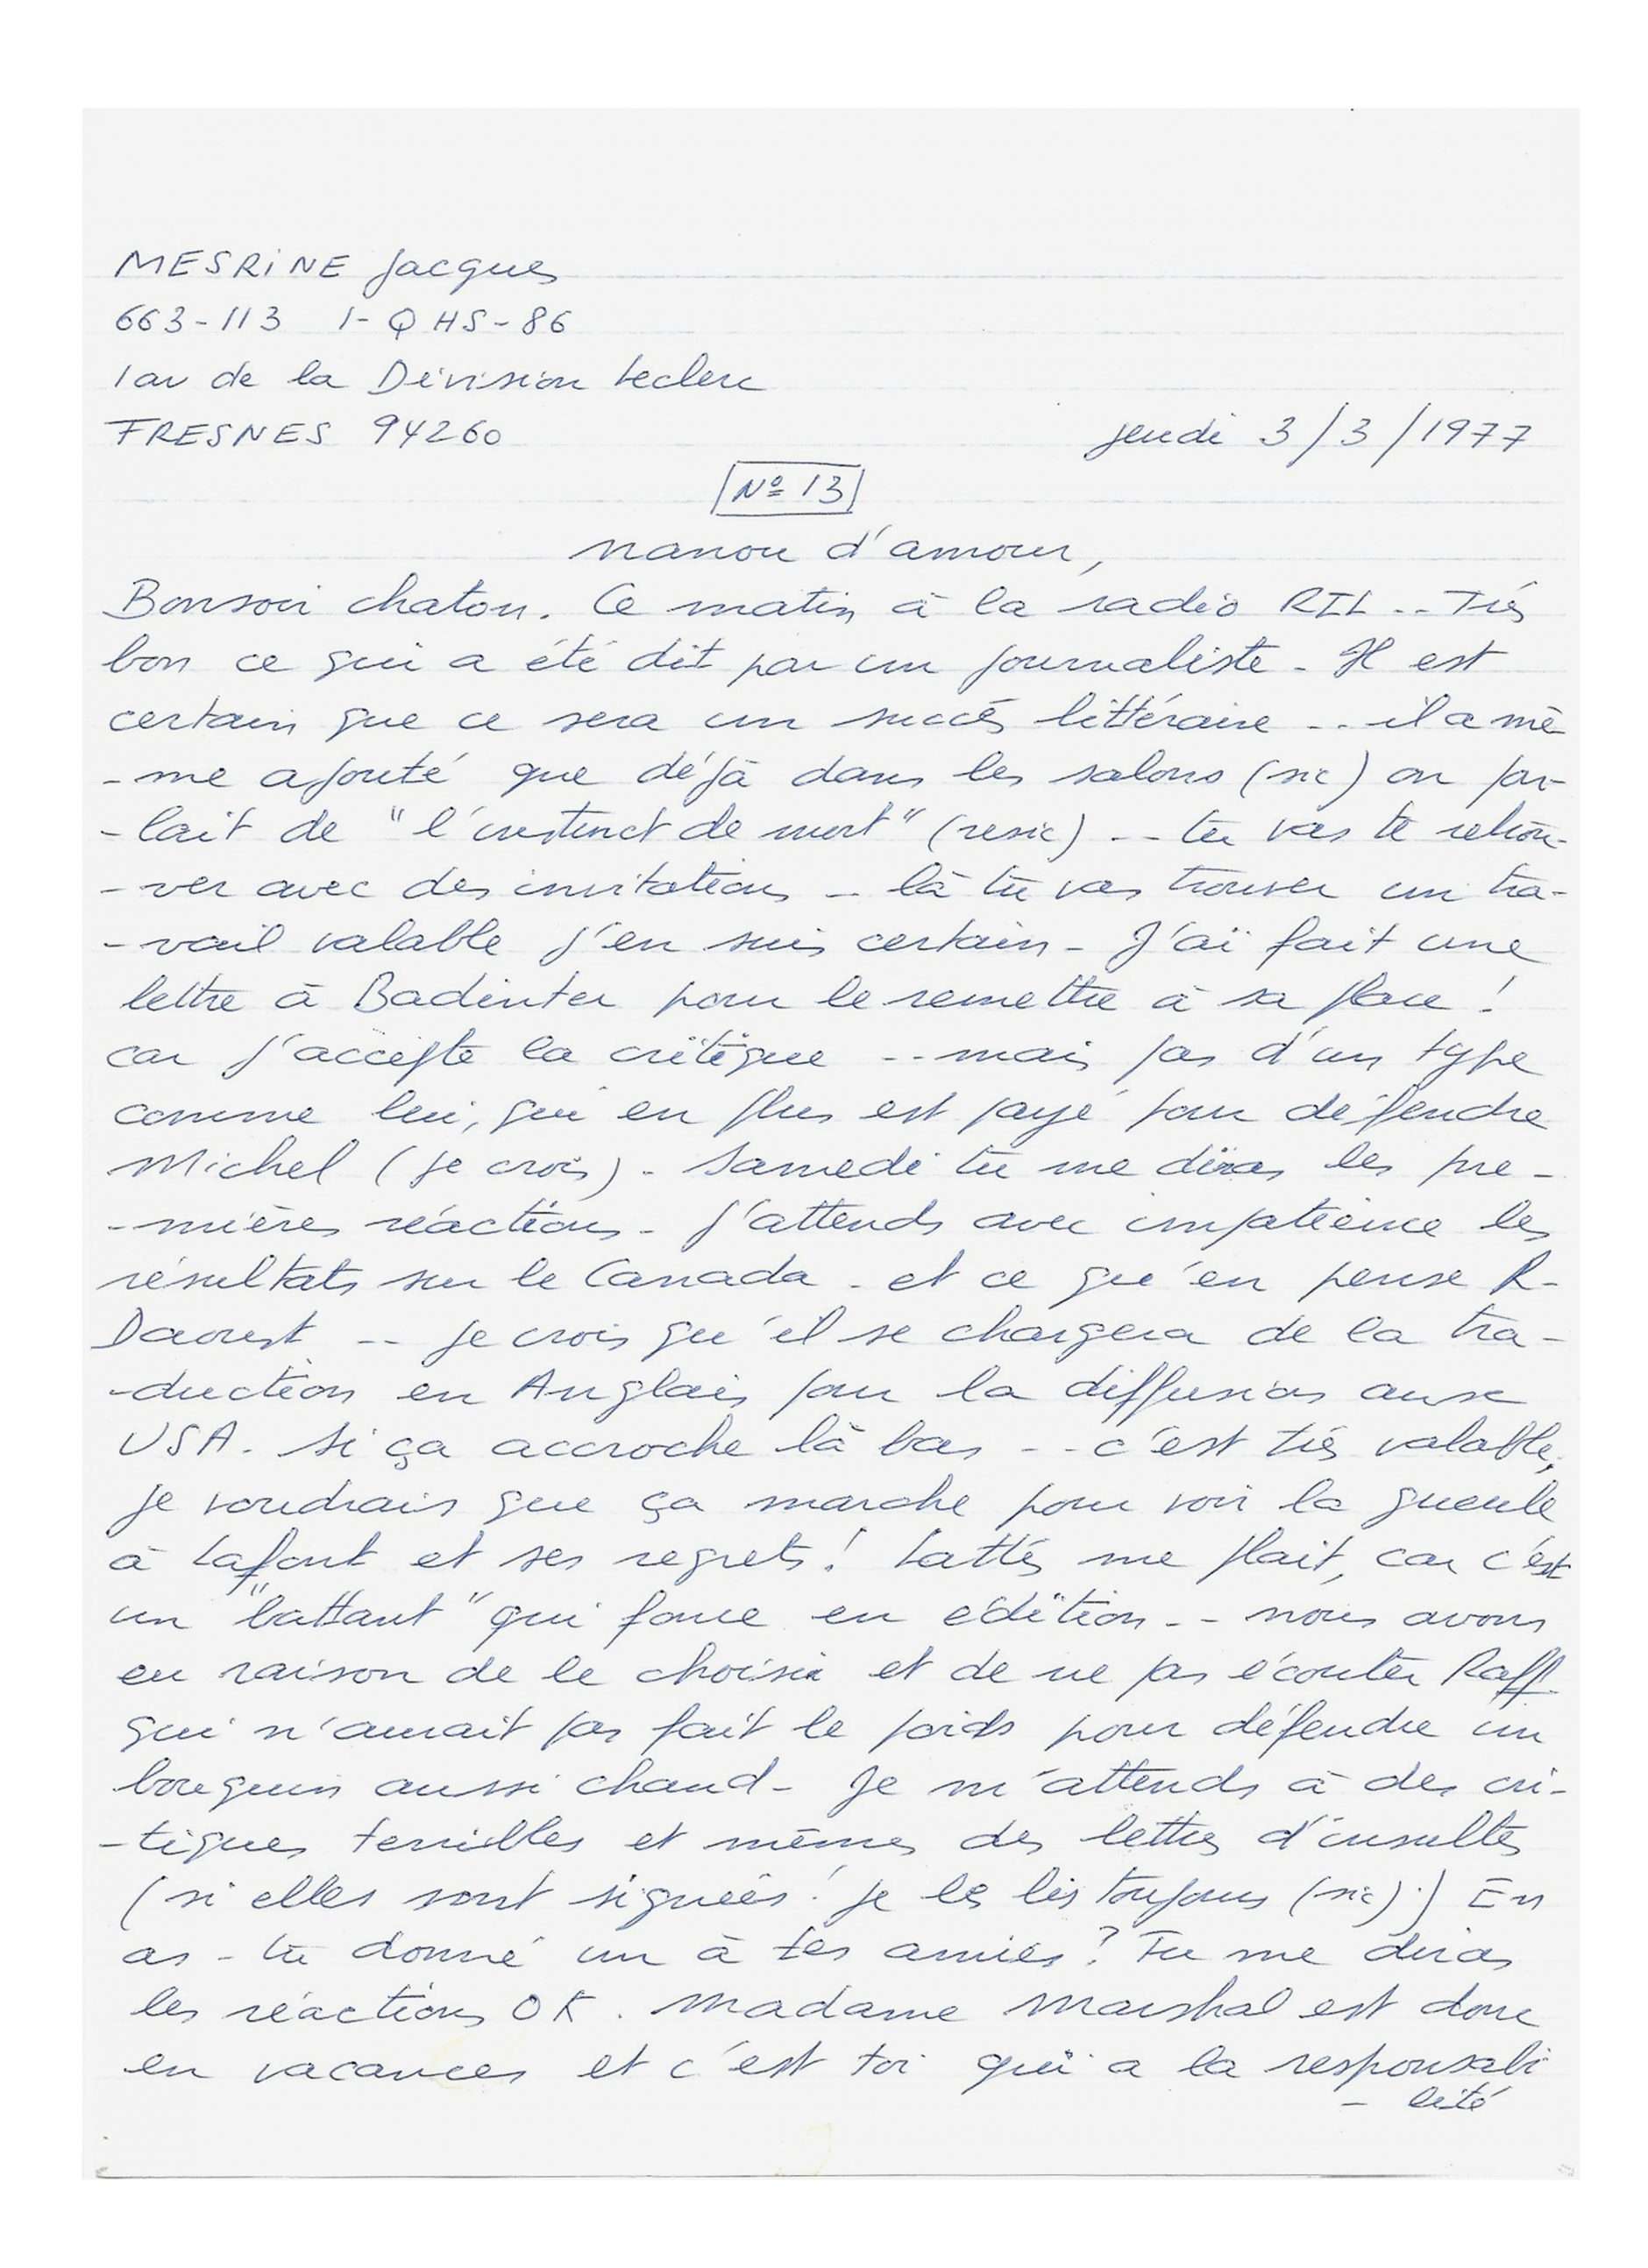 MESRiNE Jacques
663-113 1-QHS-86
1 av de la Division Leclerc
FRESNES 94260
jeudi 3/3/1977
N° 13
nanou d'amour,
Bonsoir chaton. Ce matin à la radio RTL .. Très
bon ce qui a été dit par un journaliste - Il est
certain que ce sera un succès littéraire .. il a mê-
-me ajouté que déjà dans les salons (sic) on par-
-lait de "l'instinct de mort" (resic) .. tu vas te retrou-
-ver avec des invitations - là tu vas trouver un tra-
-vail valable j'en suis certain - J'ai fait une
lettre à Badinter pour le remettre à sa place !
car j'accepte la critique .. mais pas d'un type
comme lui, qui en plus est payé pour défendre
Michel (je crois). Samedi tu me diras les pre-
-mières réactions - J'attends avec impatience les
résultats sur le Canada - et ce qu'en pense R-
Daoust .. je crois qu'il se chargera de la tra-
-duction en Anglais pour la diffusion aux
USA. Si ça accroche là bas .. c'est très valable,
je voudrais que ça marche pour voir la gueule
à Lafont et ses regrets ! Lattès me plait, car c'est
un "battant" qui fonce en édition .. nous avons
eu raison de le choisir et de ne pas écouter Raff
qui n'aurait pas fait le poids pour défendre un
bouquin aussi chaud - Je m'attends à des cri-
-tiques terribles et mêmes des lettres d'insultes
(si elles sont signées ! je les lis toujours (sic).) En
as-tu donné un à tes amies ? Tu me diras
les réactions OK. Madame Marshal est donc
en vacances et c'est toi qui a la responsabi
- lité